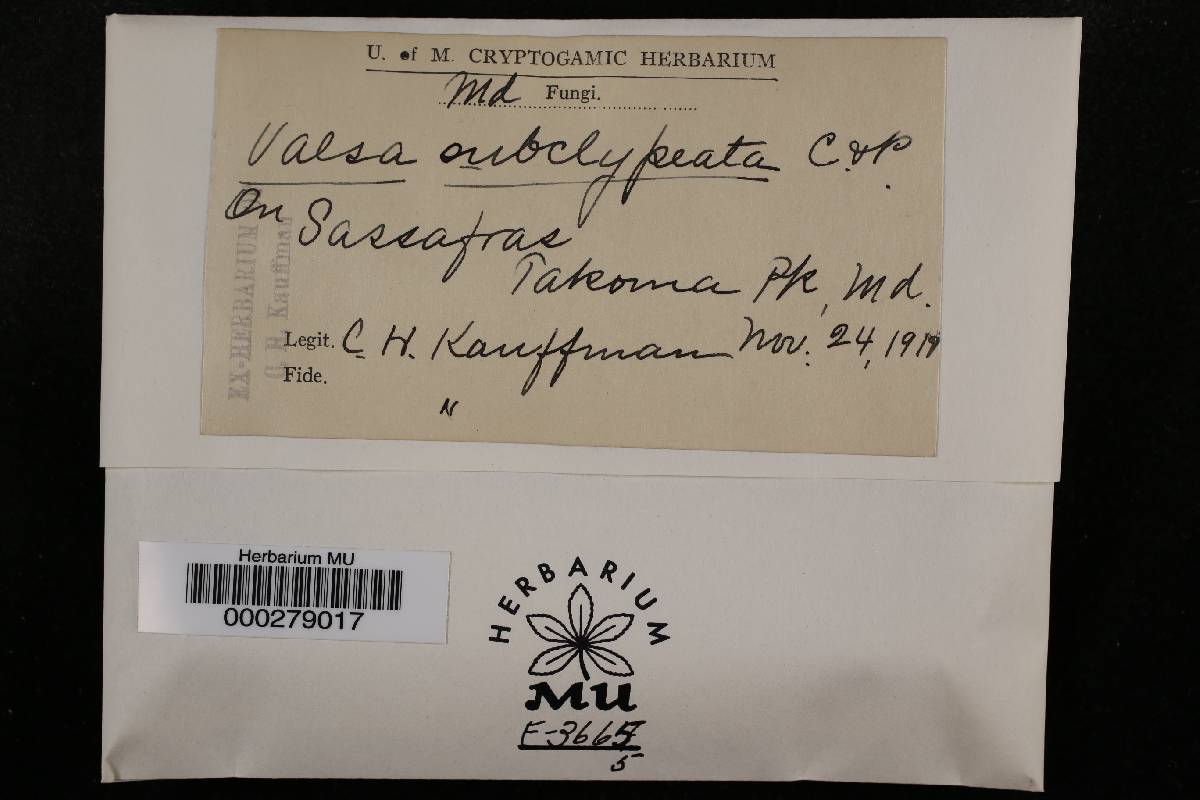 U. of M. CRYPTOGAMIC HERBARIUM
Md Fungi.
Valsa subclypeata C.&P.
On Sassafras
Takoma Pk, Md.
Legit. C. H. Kauffman Nov. 24, 1919
Fide.
N
EX-HERBARIUM
C. H. Kauffman
Herbarium MU
000279017
HERBARIUM
MU
F-3665
5